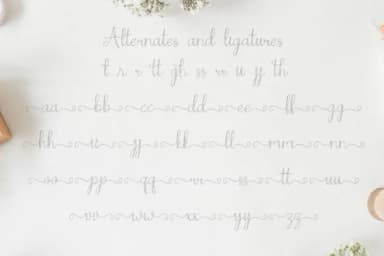 Alternates and ligatures
t r r tt gh ss rr ii yy th
aa bb cc dd ee ff gg
hh ii jj kk ll mm nn
oo pp qq rr ss tt uu
vv ww xx yy zz